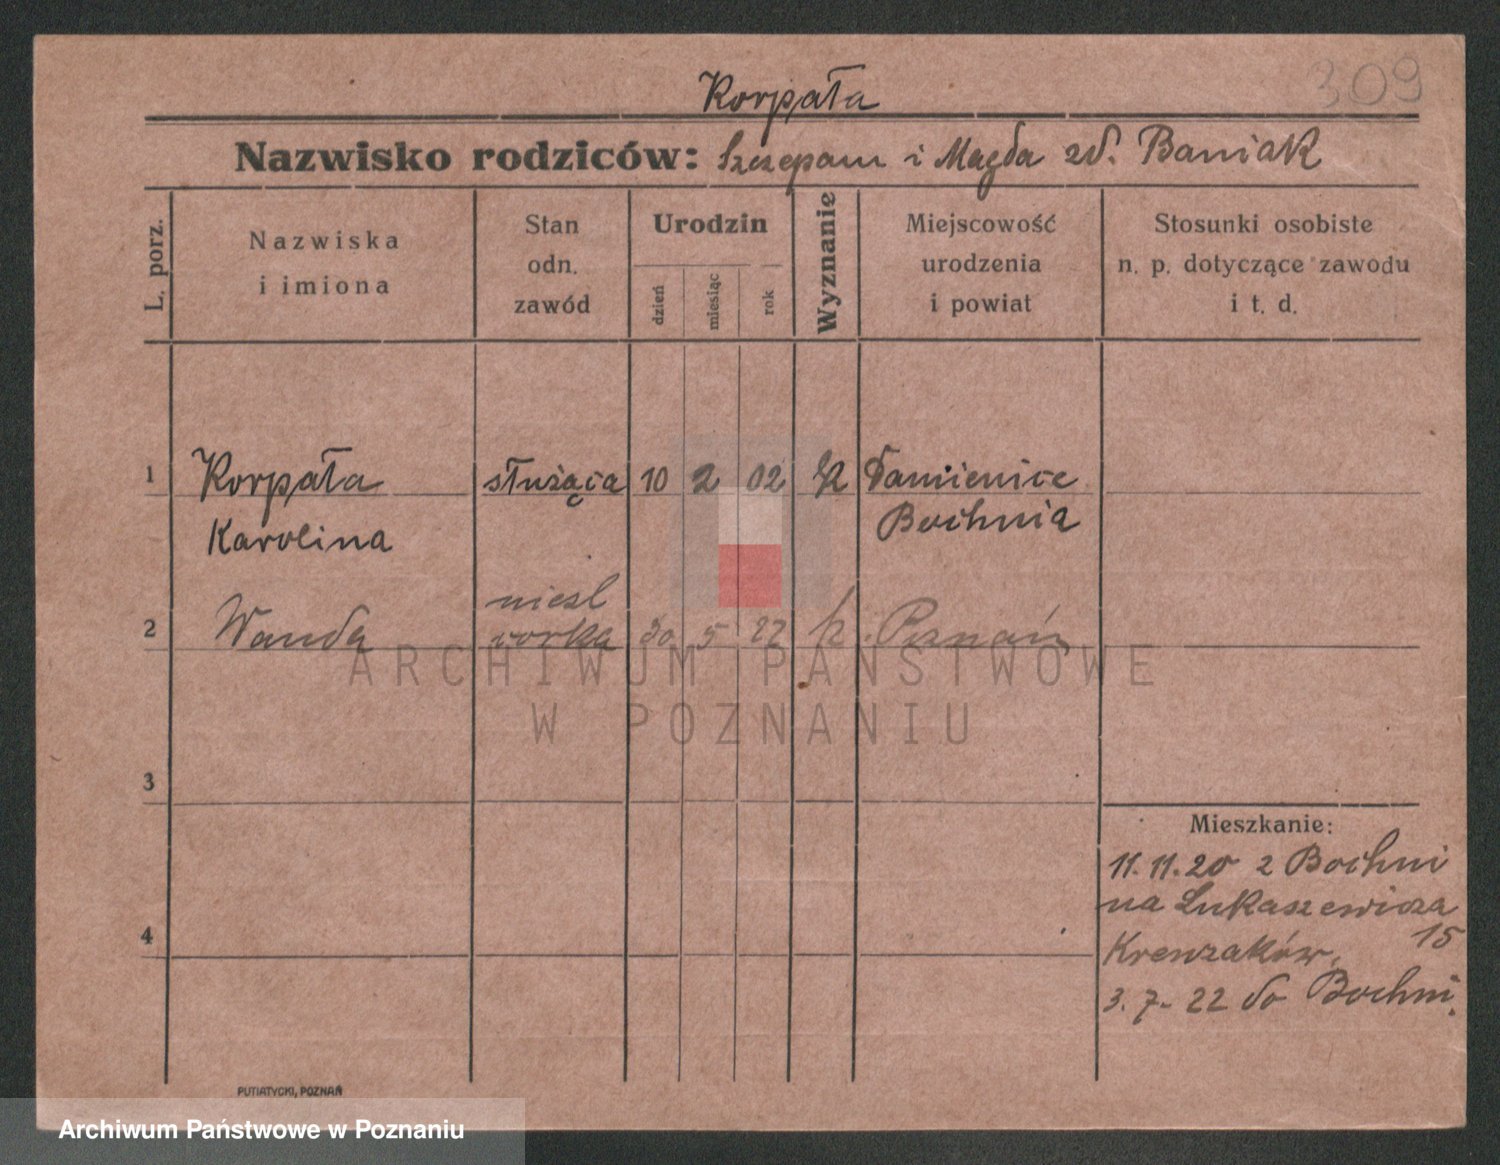 309
Korpała
Nazwisko rodziców: Szczepan i Magda zd. Baniak
L. porz.
Nazwiska
i imiona
Stan
odn.
zawód
Urodzin
dzień
miesiąc
rok
Wyznanie
Miejscowość
urodzenia
i powiat
Stosunki osobiste
n. p. dotyczące zawodu
i t. d.
1 Korpała służąca 10 2 02 Damienice
Karolina Bochnia
niesl
2 Wanda córka 30 5 22 k. Poznań
ARCHIWUM PAŃSTWOWE
W POZNANIU
3
4
Mieszkanie:
11.11.20 z Bochni
na Łukaszewicza
15
3.7-22 do Bochni.
PUTIATYCKI, POZNAŃ
Archiwum Państwowe w Poznaniu